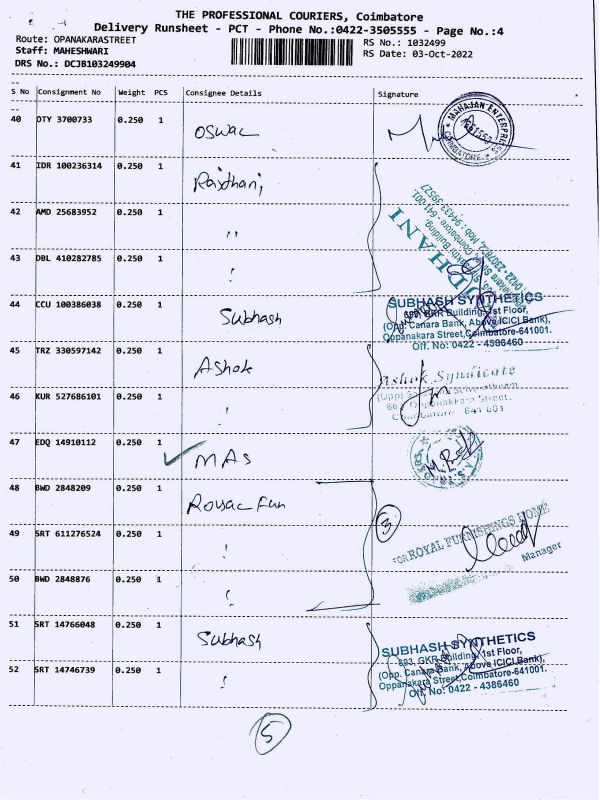 THE PROFESSIONAL COURIERS, Coimbatore
Delivery Runsheet - PCT - Phone No.:0422-3505555 - Page No.:4
Route: OPANAKARASTREET
RS No.: 1032499
Staff: MAHESHWARI
RS Date: 03-Oct-2022
DRS No.: DCJB103249904
S No Consignment No Weight PCS Consignee Details Signature
40 OTY 3700733 0.250 1 MAHAJAN ENTERPRISES COIMBATORE
41 IDR 100236314 0.250 1 Rajdhani
42 AMD 25683952 0.250 1 "
43 DBL 410282785 0.250 1
44 CCU 100386038 0.250 1 Subhash
SUBHASH SYNTHETICS
693, GKR Building, 1st Floor,
(Opp. Canara Bank, Above ICICI Bank),
Oppanakara Street, Coimbatore-641001.
Off. No: 0422 - 4386460
45 TRZ 330597142 0.250 1 Ashok
Ashok Syndicate
66 Oppanakkara Street,
Coimbatore 641 001
46 KUR 527686101 0.250 1
47 EDQ 14910112 0.250 1 MAS
48 BWD 2848209 0.250 1
3
49 SRT 611276524 0.250 1
FOR ROYAL FURNISHINGS HOME
Manager
50 BWD 2848876 0.250 1
51 SRT 14766048 0.250 1 Subhash
SUBHASH SYNTHETICS
693, GKR Building, 1st Floor,
(Opp. Canara Bank, Above ICICI Bank),
Oppanakara Street, Coimbatore-641001.
Off. No: 0422 - 4386460
52 SRT 14746739 0.250 1
5